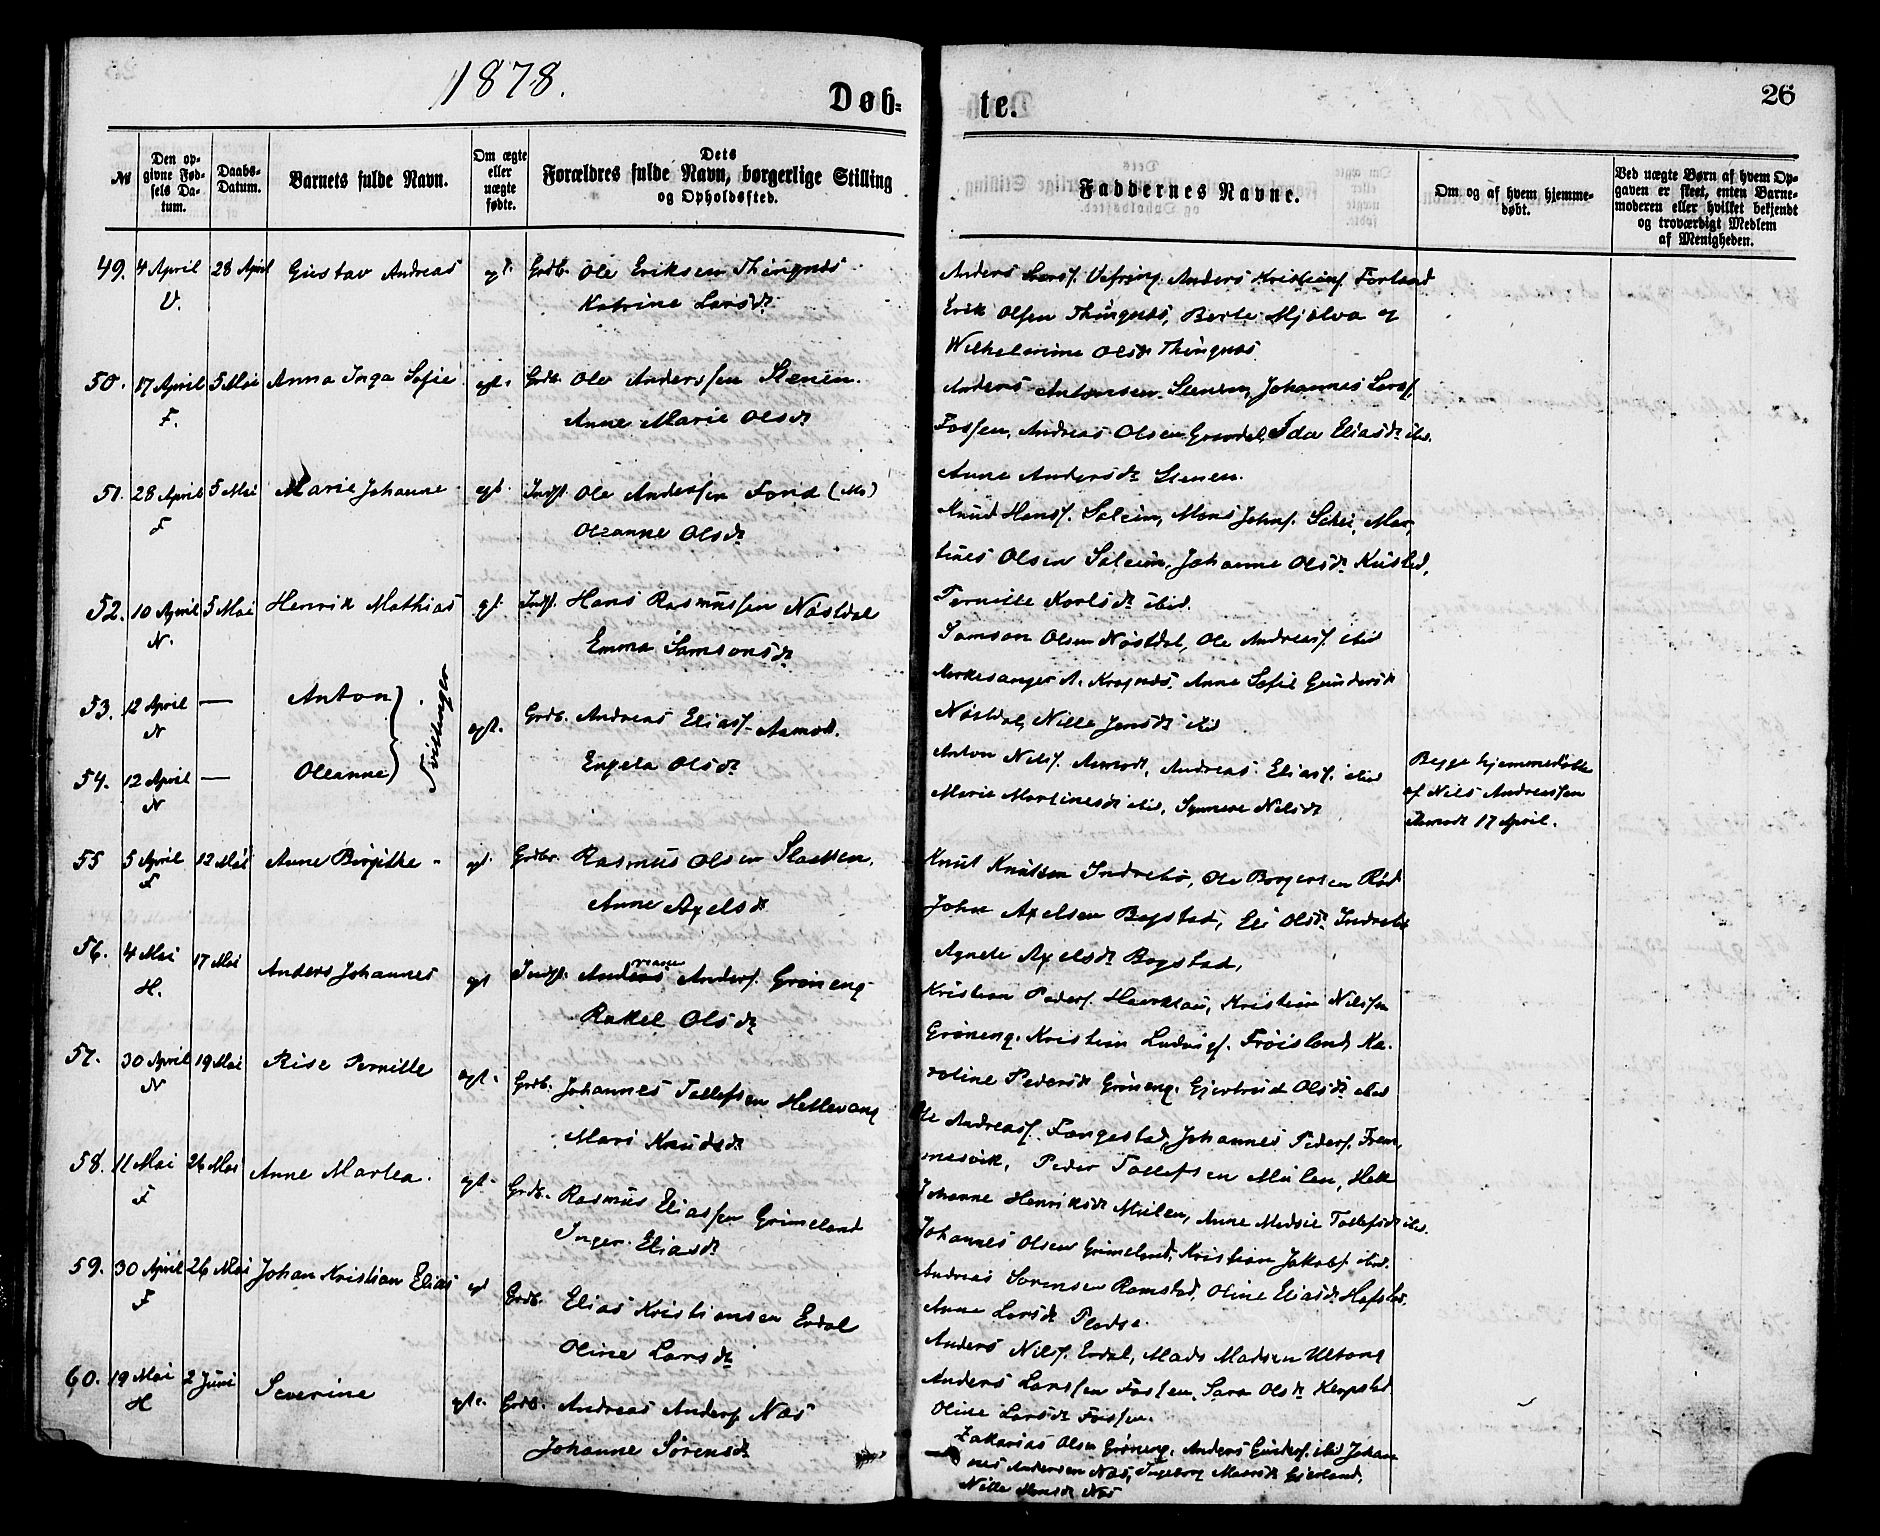 1878.
Døb-
te.
26
№
Den opgivne Fødsels Datum.
Daabs-Datum.
Barnets fulde Navn.
Om ægte eller uægte fødte.
Dets Forældres fulde Navn, borgerlige Stilling og Opholdssted.
Faddernes Navne.
Om og af hvem hjemmedøbt.
Ved uægte Børn af hvem Opgaven er skeet, enten Barnemoderen eller hvilket bekjendt og troværdigt Medlem af Menigheden.
49. 4 April 28 April Gustav Andreas egt. Grdb. Ole Eriksen Thingnæs
V. Katrine Larsdr
Anders Larss. Vefring. Anders Kristians. Forland
Erik Olsen Thingnæs, Berte Mjelva og
Wilhelmine Olsdr Thingnæs
50. 17 April 5 Mai Anna Inga Sofie egt. Grdb. Ole Anderssen Stenen.
F. Anne Marie Olsdr
Anders Antonsen Stenen, Johannes Larss.
Fossen, Andreas Olsen Grimdal, Ida Eliasdr ibd.
Anne Andersdr Stenen.
51. 28 April 5 Mai Marie Johanne egt. Indst. Ole Anderssen Fond (Mo)
F Oleanne Olsdr
Knud Hanss. Soleim, Mons Johns. Schei, Mar-
tines Olsen Soleim, Johanne Olsdr
Pernille Karlsdr ibid.
52. 10 April 5 Mai Henrik Mathias egt. Indst. Hans Rasmussen Nøstdal
N. Emma Samsonsdr
Samson Olsen Nøstdal, Ole Andreass. ibid
Kirkesanger A. Kragnæs. Anne Sofie Gundersdr
Nøstdal, Nille Jensdr ibid
53. 12 April — Anton
N
Tvillinger
egt. Grdb. Andreas Eliass. Asmodt.
Engela Olsdr
54. 12 April — Oleanne
N
Anton Nilss. Asmodt, Andreas Eliass. ibid
Marie Martinesdr ibid, Synneve Nilsdr
Begge hjemmedøbte
af Nils Andreassen
Asmodt 17 April.
55 5 April 12 Mai Anne Birgitte egt. Grdbr. Rasmus Olsen Slatten.
F Anne Axelsdr
Knut Knutsen Indrebø, Ole Borgersen
John Axelsen Bogstad, Eli Olsdr Indrebø
Agnete Axelsdr Bogstad,
56. 4 Mai 17 Mai Anders Johannes egt Indst. Andreas Anders. Grøneng
H. Rakel Olsdr
Kristian Peders. Kristian Nilssen
Grøneng. Kristian Ludvigs. Frøisland, Ka-
roline Pedersdr Grøneng. Gjertrud Olsdr ibid
57. 30 April 19 Mai Rise Pernille egt. Grdb. Johannes Tollefsen Hellevang
N Mari Knudsdr
Ole Andreass. Fangestad, Johannes Peders. Frem-
mesvik, Peder Tollefsen Mulen, Helle
Johanne Henriksdr Mulen, Anne Madsie Tollefsdr ibd.
58. 11 Mai 26 Mai Anne Martea. egt. Grdb. Rasmus Eliassen Grimeland
F Inger Eliasdr
Johannes Olsen Grimeland, Kristian Jakobs. ibd.
Andreas Sørensen Ramstad, Oline Eliasdr Hafstad.
Anne Larsdr
59. 30 April 26 Mai Johan Kristian Elias egt Grdb. Elias Kristiansen Erdal
F Oline Larsdr
Anders Nilss. Erdal, Mads Madsen Ultang
Anders Larssen Fossen, Sara Olsdr
Oline Larsdr Fossen.
60. 19 Mai 2 Juni Severine egt. Grdb. Andreas Anders. Næs
H Johanne Sørensdr
Zakarias Olsen Grøneng. Anders Gunders. ibid Johan-
nes Andersen Næs, Ingeborg Gjerland,
Nille Monsdr Næs